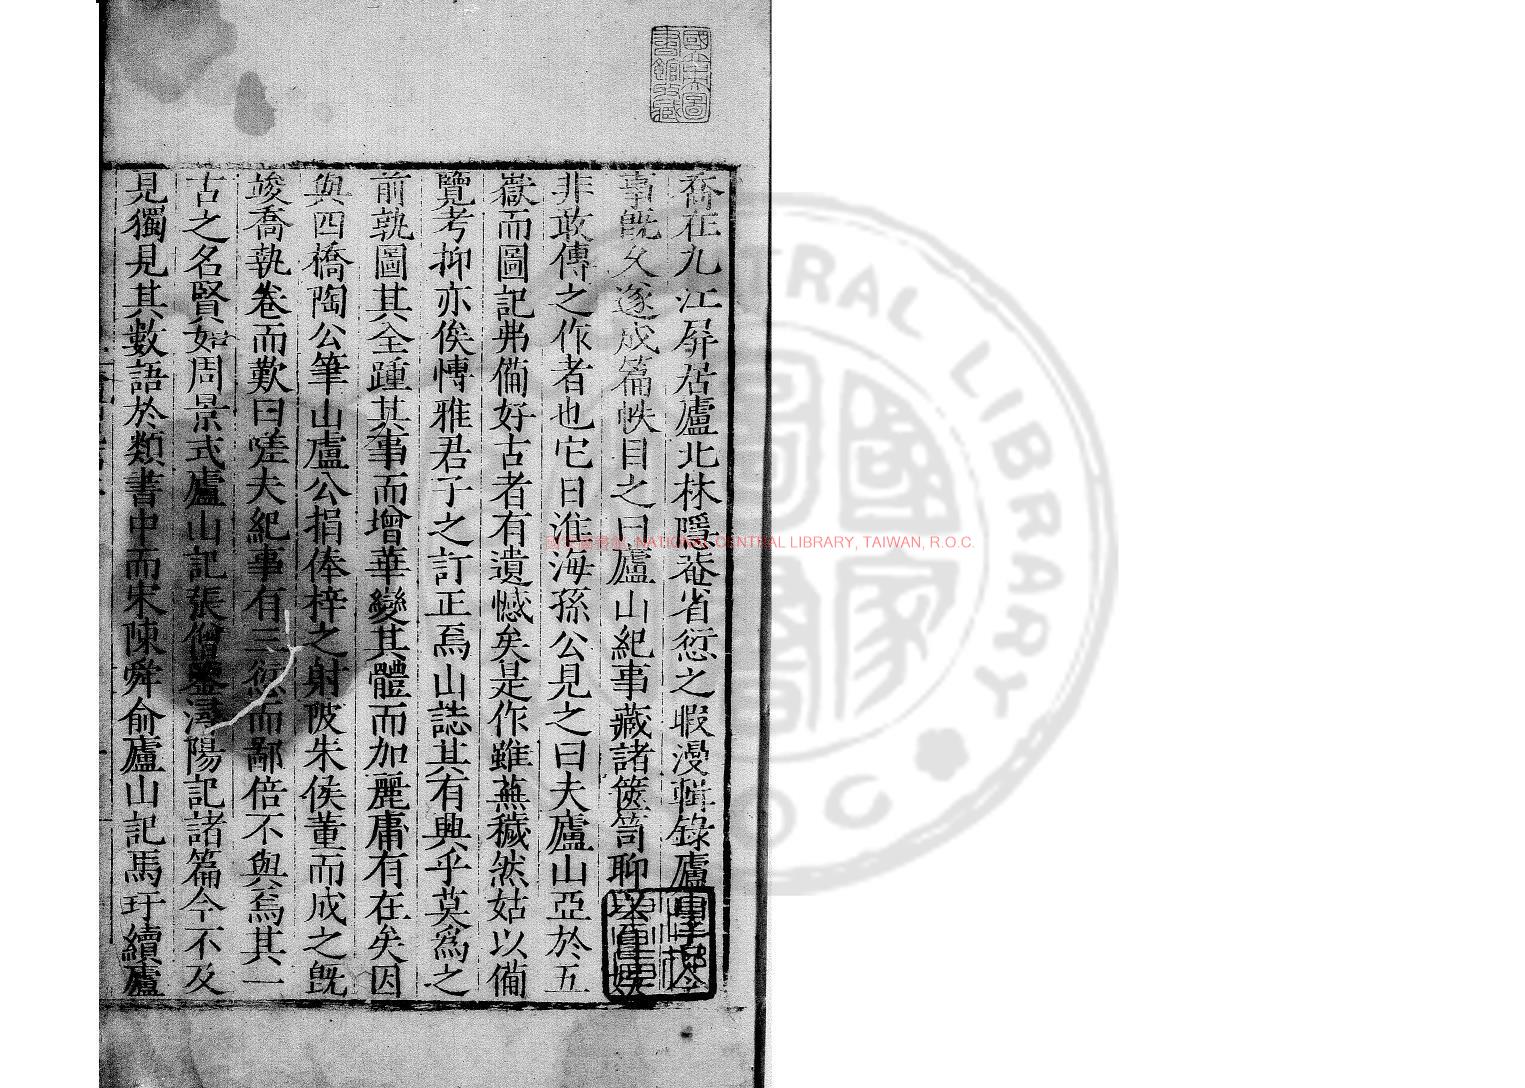 喬在九江屛居廬北林隱菴省愆之暇漫輯錄廬
事旣久遂成篇帙目之曰廬山紀事藏諸篋笥聊以自娛
非敢傳之作者也它日淮海孫公見之曰夫廬山亞於五
嶽而圖記弗備好古者有遺憾矣是作雖蕪穢然姑以備
覽考抑亦俟愽雅君子之訂正焉山誌其有興乎莫爲之
前孰圖其全踵其事而增華變其體而加麗庸有在矣因
與四橋陶公筆山廬公捐俸梓之射陂朱侯董而成之旣
竣喬執卷而歎曰嗟夫紀事有三愆而鄙倍不與焉其一
古之名賢如周景式廬山記張僧鑒潯陽記諸篇今不及
見獨見其數語於類書中而宋陳舜俞廬山記馬玗續廬
國立中央圖書館收藏
國家圖書館 NATIONAL CENTRAL LIBRARY, TAIWAN, R.O.C.
CENTRAL LIBRARY R.O.C.